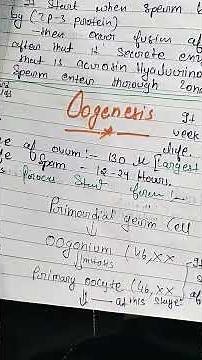 Start when sperm b
by (ZP-3 protein)
-then occur fusion af
after that it secrete en
that is acrosin Hyaluronid
Sperm enter thorough Zon
Oogenesis
It
week
life
of ovum:- 130 μ [Largest
Span - 12-24 Hours.
Process Start from :-
Primordial germ Cell
Oogonium (46, XX
mitosis
Primary oocyte (46, XX
at this stage